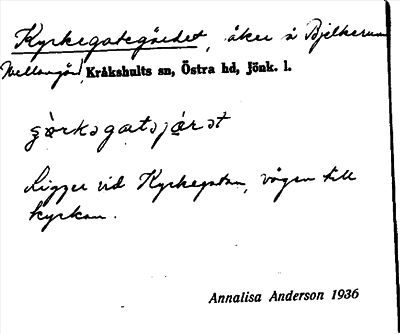 Kyrkegategärdet, åker å Bjelkerum
Mellangård Kråkshults sn, Östra hd, Jönk. l.
Ligger vid Kyrkegatan, vägen till
kyrkan.
Annalisa Anderson 1936